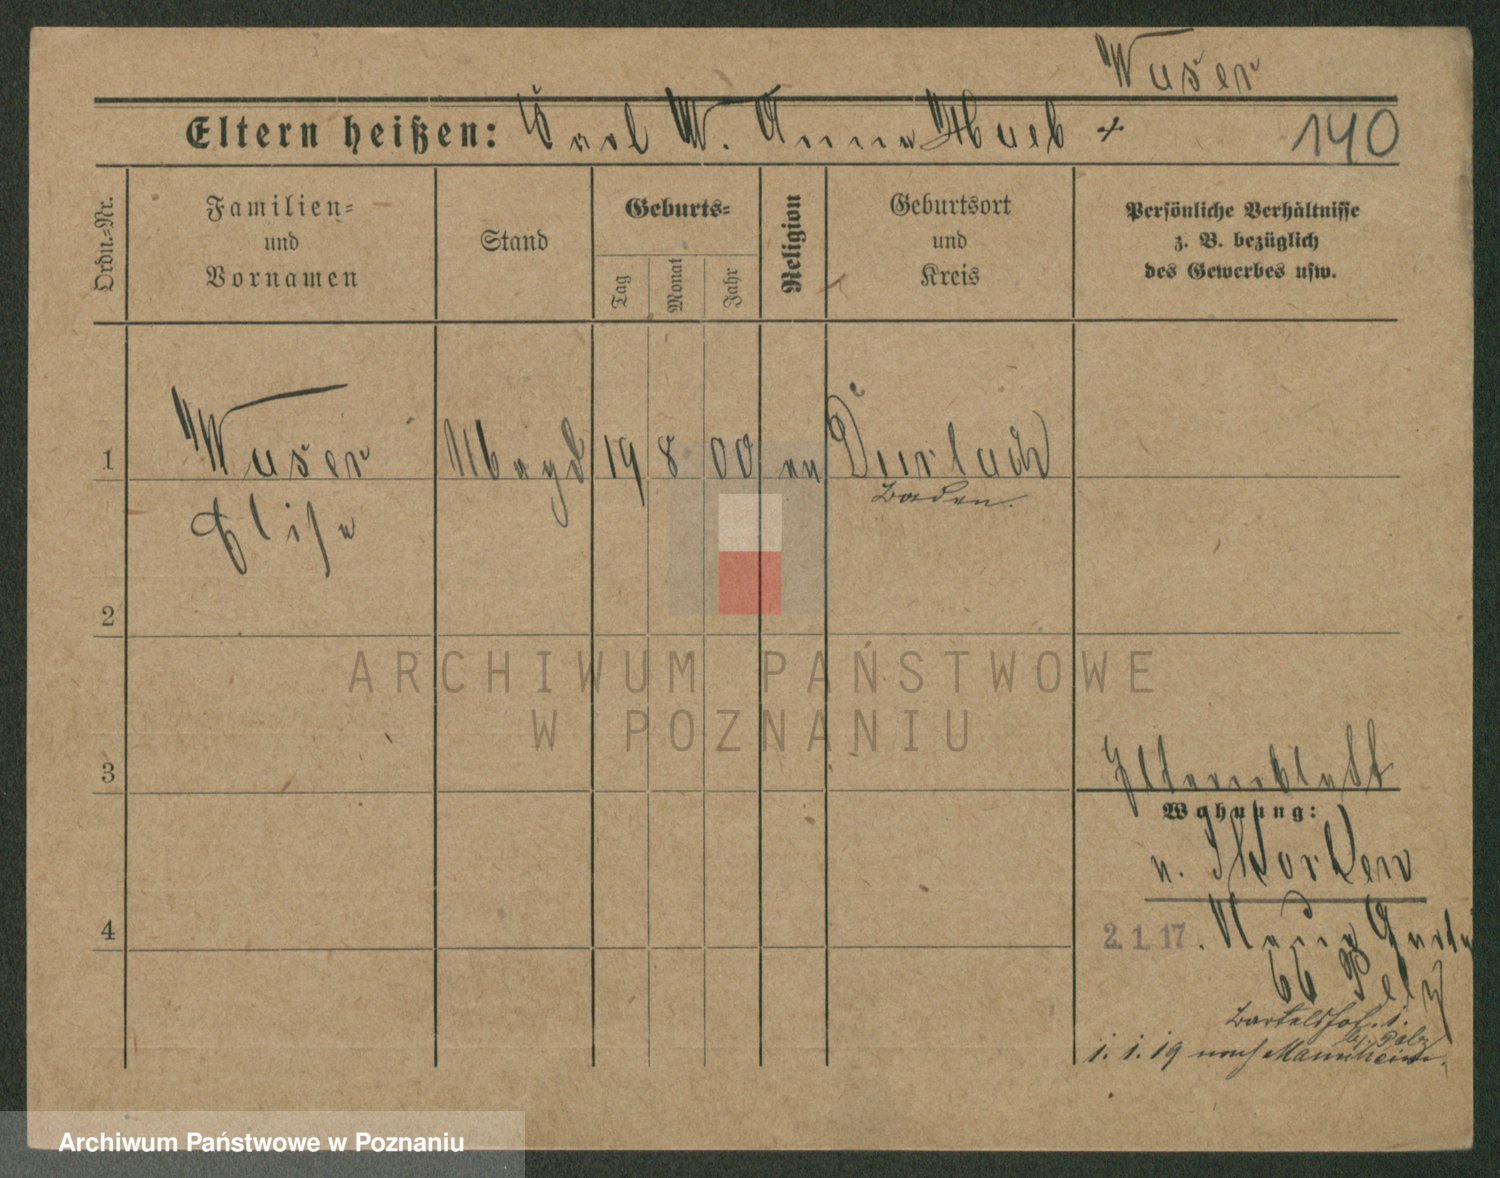 Wuser
Eltern heißen: Karl W. Anna Hueb +
140
Ordn.-Nr.
Familien-
und
Vornamen
Stand
Geburts-
Tag
Monat
Jahr
Religion
Geburtsort
und
Kreis
Persönliche Verhältnisse
z. B. bezüglich
des Gewerbes usw.
1
Wuser
Elise
Magd
19
8
00
ev
Durlach
Baden.
2
ARCHIWUM PAŃSTWOWE
W POZNANIU
3
Elternblatt
Wohnung:
n.
4
2.1.17. Neue
66 Pelz
Bartelshof. i.
b. Pelz
1. 1. 19 nach Mannheim.
Archiwum Państwowe w Poznaniu